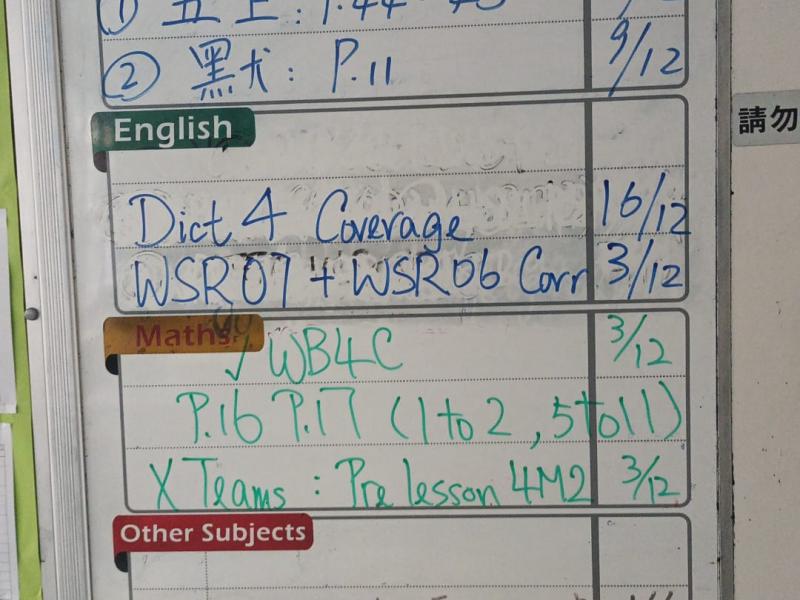 ② 黑犬: P.11 9/12
請勿
English
Dict 4 Coverage 16/12
WSR07 + WSR06 Corr 3/12
Maths
✓ WB4C 3/12
P.16 P.17 (1 to 2, 5 to 11)
X Teams : Pre lesson 4M2 3/12
Other Subjects